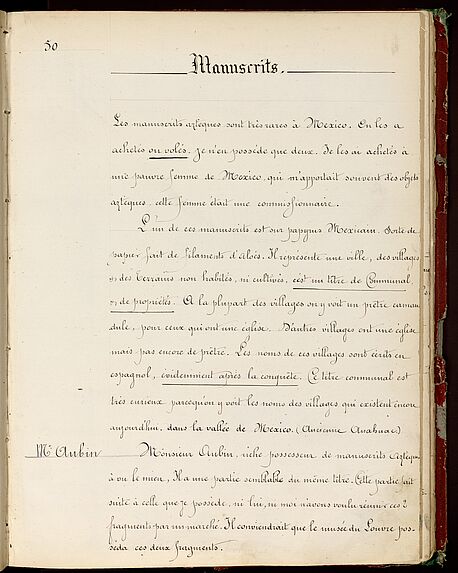 50
Manuscrits.
Les manuscrits aztèques sont très rares à Mexico. On les a
achetés ou volés. Je n'en possède que deux. Je les ai achetés à
une pauvre femme de Mexico, qui m'apportait souvent des objets
aztèques. cette femme était une commissionnaire.
L'un de ces manuscrits est sur papyrus Mexicain. Sorte de
papier fait de filaments d'aloès. Il représente une ville, des villages
et des terrains non habités, ni cultivés, c'est un titre de Communal,
et de propriétés. A la plupart des villages on y voit un prêtre camal
dule, pour ceux qui ont une église. D'autres villages ont une église
mais pas encore de prêtre. Les noms de ces villages sont écrits en
espagnol, evidemment après la conquête. Ce titre communal est
très curieux parcequ'on y voit les noms des villages qui existent encore
aujourd'hui, dans la vallée de Mexico. (Ancienne Anahuac)
Mr Aubin
Monsieur Aubin, riche possesseur de manuscrits Aztèques
à vu le mien, Il a une partie semblable du même titre. Cette partie fait
suite à celle que je possède, ni lui, ni moi n'avons voulu réunir ces 2
fragments par un marché. Il conviendrait que le musée du Louvre pos-
seda ces deux fragments.